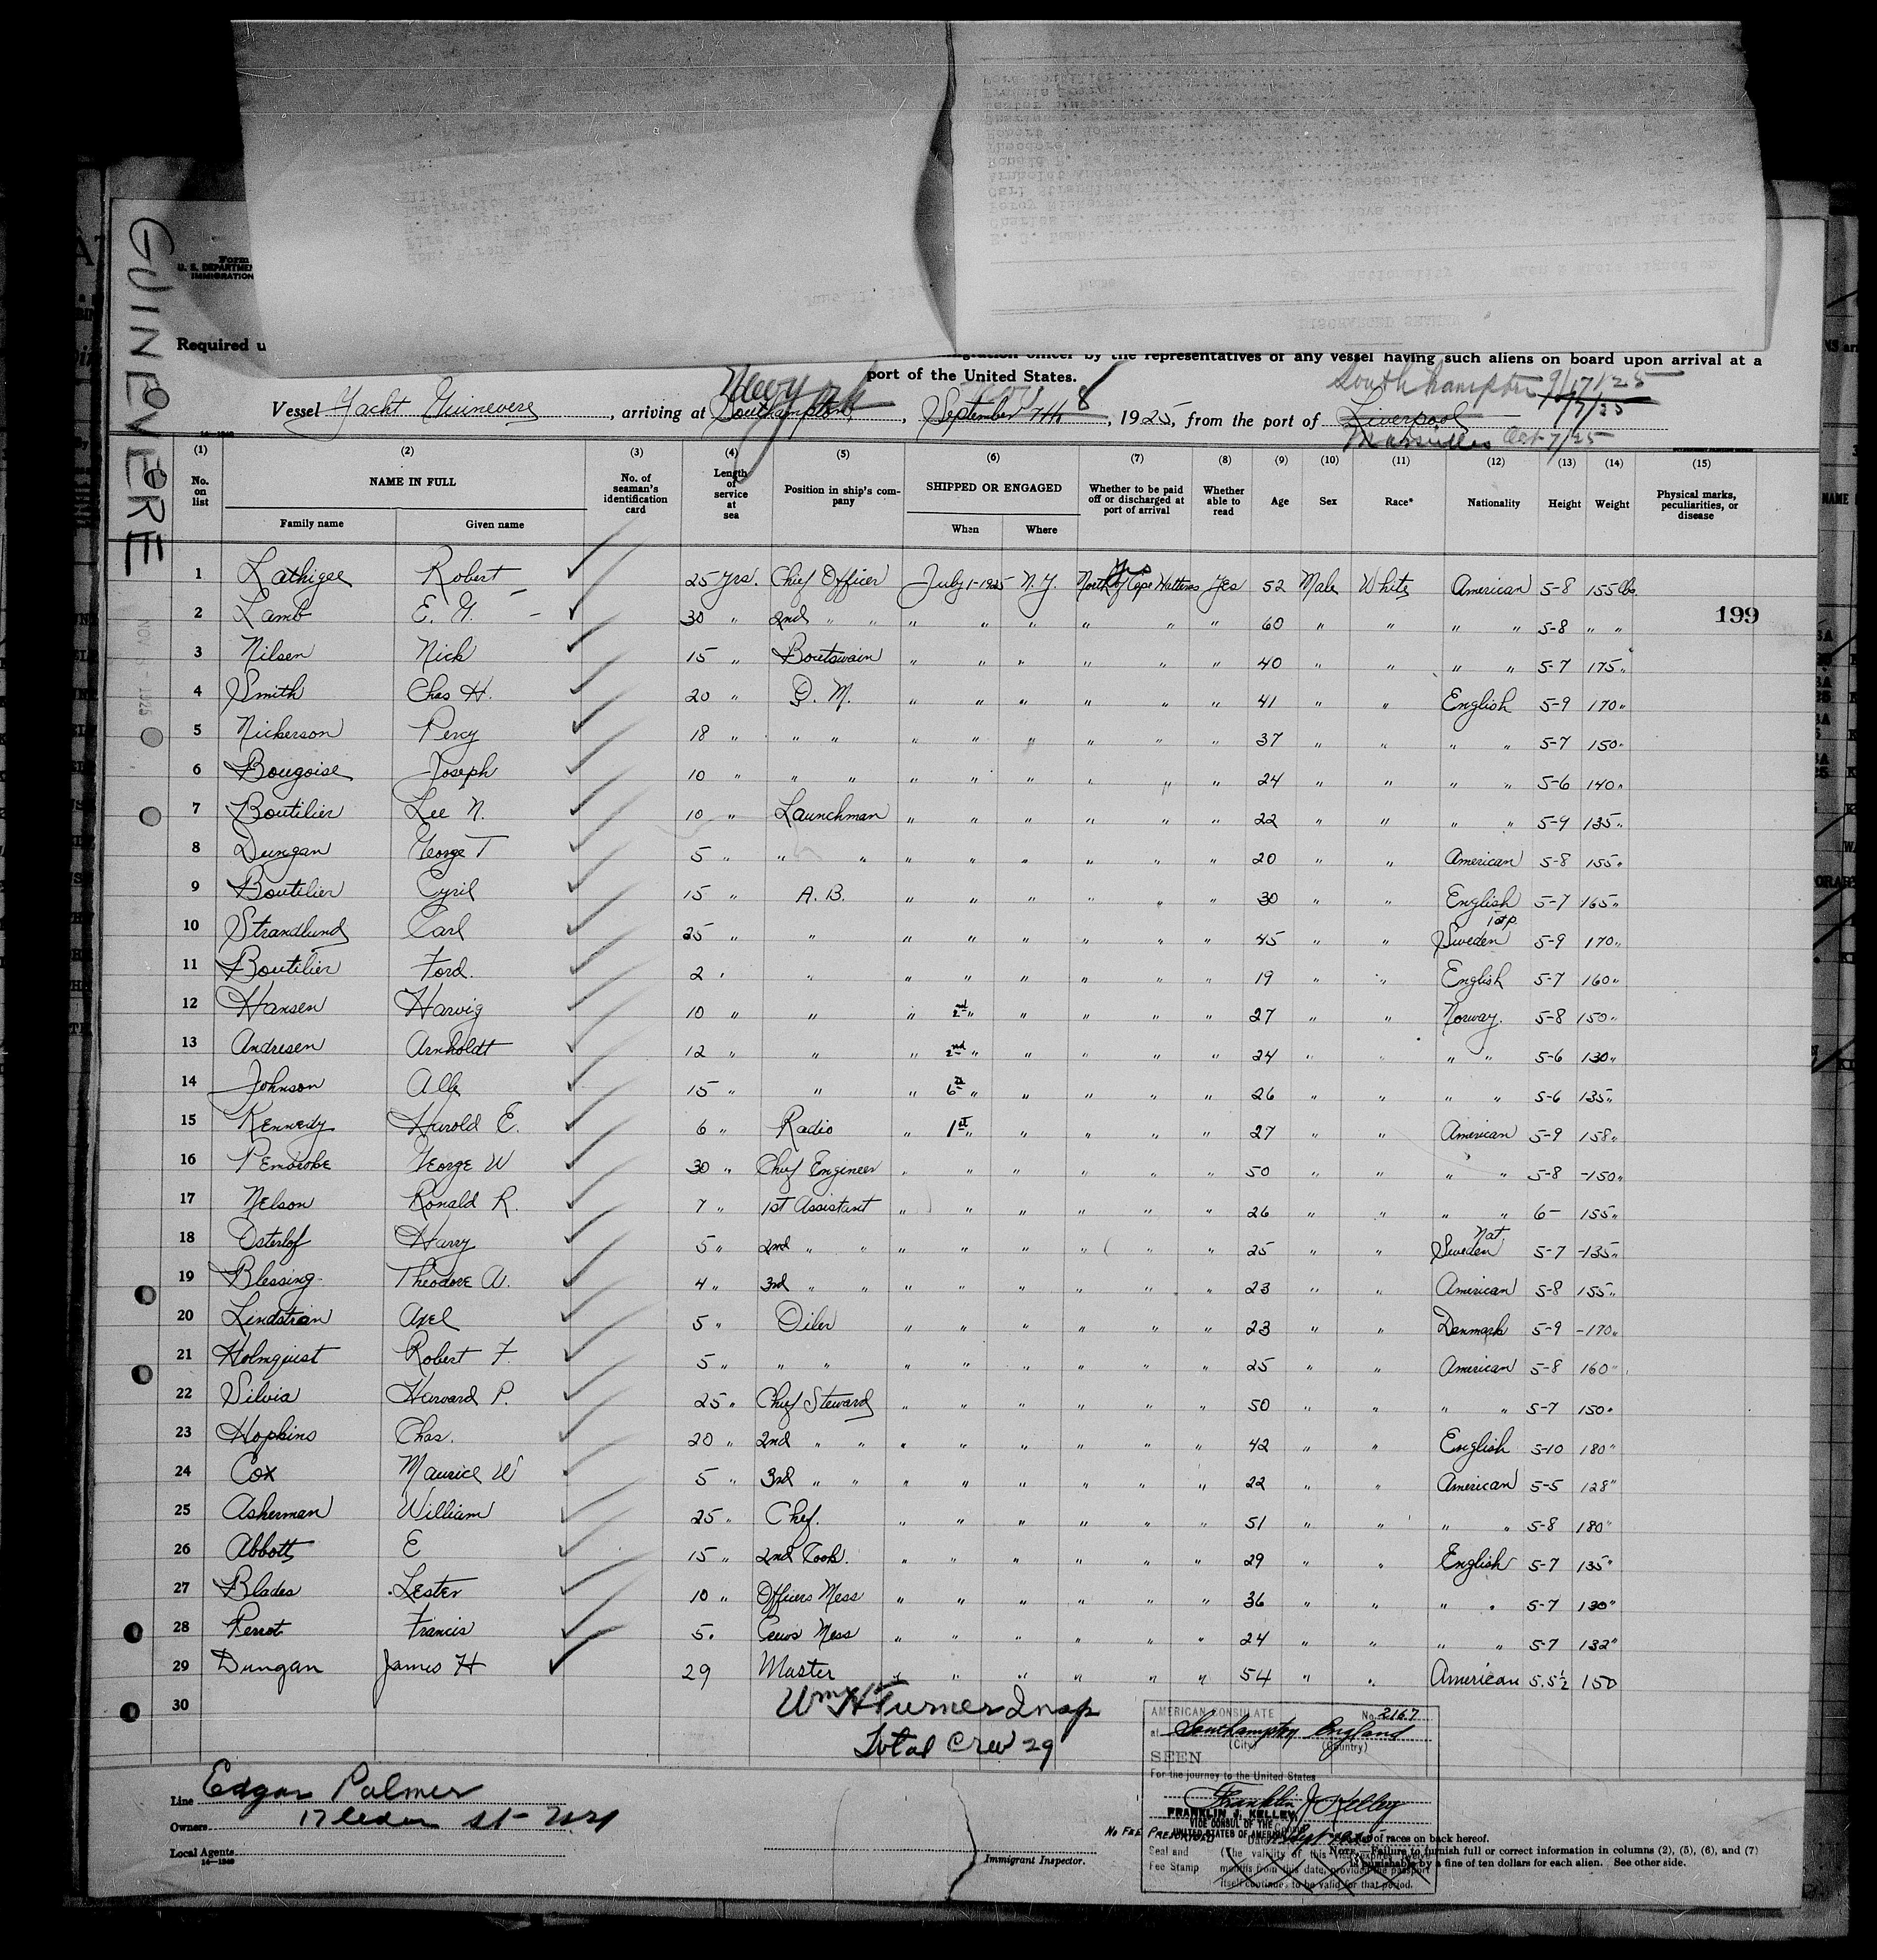 GUINEVERE
Form
U. S. DEPARTMENT
IMMIGRATION
Required u
gration officer by the representatives of any vessel having such aliens on board upon arrival at a
port of the United States.
New York
Southampton 9/17/25
Vessel Yacht Guinevere, arriving at Southampton, September 7th 8, 1925, from the port of Liverpool
Marseilles Oct 7/25
(1) (2) (3) (4) (5) (6) (7) (8) (9) (10) (11) (12) (13) (14) (15)
No. on list NAME IN FULL No. of seaman's identification card Length of service at sea Position in ship's company SHIPPED OR ENGAGED Whether to be paid off or discharged at port of arrival Whether able to read Age Sex Race* Nationality Height Weight Physical marks, peculiarities, or disease
Family name Given name When Where
1 Lathigee Robert 25 yrs. Chief Officer July 1-1925 N.Y. North of Cape Hatteras Yes 52 Male White American 5-8 155 lbs.
2 Lamb E. G. 30 " 2nd " " " " " " " " 60 " " " " 5-8 " "
199
3 Nilsen Nick 15 " Boutswain " " " " " " 40 " " " " 5-7 175 "
4 Smith Chas H. 20 " Q. M. " " " " " " 41 " " English 5-9 170 "
5 Nickerson Percy 18 " " " " " " " " " 37 " " " " 5-7 150 "
6 Bougoise Joseph 10 " " " " " " " " " 24 " " " " 5-6 140 "
7 Boutilier Lee N. 10 " Launchman " " " " " " 22 " " " " 5-9 135 "
8 Dungan George T 5 " " " " " " " " " 20 " " American 5-8 155 "
9 Boutilier Cyril 15 " A. B. " " " " " " 30 " " English 5-7 165 "
10 Strandlund Carl 25 " " " " " " " " 45 " " Sweden 1st p. 5-9 170 "
11 Boutilier Ford. 2 " " " " " " " " 19 " " English 5-7 160 "
12 Hansen Harvig 10 " " " 2nd " " " " " 27 " " Norway. 5-8 150 "
13 Andresen Arnholdt 12 " " " 2nd " " " " " 24 " " " " 5-6 130 "
14 Johnson Alf 15 " " " 6th " " " " " 26 " " " " 5-6 135 "
15 Kennedy Harold E. 6 " Radio " 1st " " " " " 27 " " American 5-9 158 "
16 Pembroke George W 30 " Chief Engineer " " " " " " 50 " " " " 5-8 -150 "
17 Nelson Ronald R. 7 " 1st Assistant " " " " " " 26 " " " " 6- 155 "
18 Osterlof Harry 5 " 2nd " " " " " " " " 25 " " Sweden Nat. 5-7 -135 "
19 Blessing Theodore W. 4 " 3rd " " " " " " " " 23 " " American 5-8 155 "
20 Lindstrian Axel 5 " Oiler " " " " " " 23 " " Denmark 5-9 -170 "
21 Holmquist Robert F. 5 " " " " " " " " " 25 " " American 5-8 160 "
22 Silvia Harvard P. 25 " Chief Steward " " " " " " 50 " " " " 5-7 150 "
23 Hopkins Chas. 20 " 2nd " " " " " " " " 42 " " English 5-10 180 "
24 Cox Maurice W 5 " 3rd " " " " " " " " 22 " " American 5-5 128 "
25 Asherman William 25 " Chef. " " " " " " 51 " " " " 5-8 180 "
26 Abbott E 15 " 2nd Cook. " " " " " " 29 " " English 5-7 135 "
27 Blades Lester 10 " Officers Mess " " " " " " 36 " " " " 5-7 130 "
28 Perrot Francis 5 " Crews Mess " " " " " " 24 " " " " 5-7 132 "
29 Dungan James H 29 Master " " " " " " 54 " " American 5.5½ 150
30
Wm H Turner Insp
Total Crew 29
AMERICAN CONSULATE No. 2167
at Southampton England
(City) (Country)
SEEN
For the journey to the United States
Franklin J. Kelley
FRANKLIN J. KELLEY,
VICE CONSUL OF THE
UNITED STATES OF AMERICA
No FEE PRESCRIBED
Seal and Fee Stamp
(The validity of this visa expires twelve months from this date, provided the passport itself continues to be valid for that period.
Line Edgar Palmer
Owners 17 Cedar St - N.Y.
Local Agents
14-1240
Immigrant Inspector.
List of races on back hereof.
NOTE.—Failure to furnish full or correct information in columns (2), (5), (6), and (7)
is punishable by a fine of ten dollars for each alien. See other side.